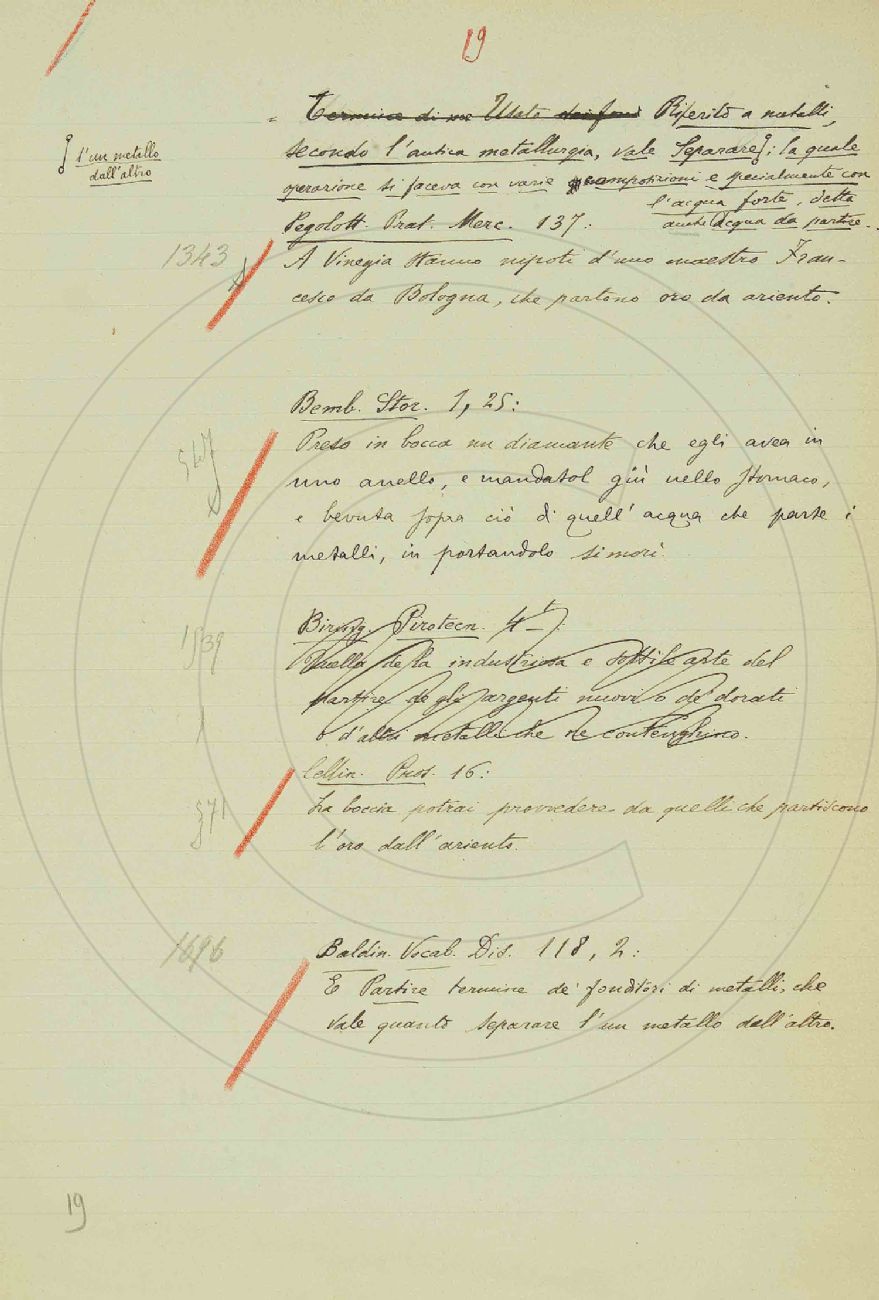 19
Termine di Usato Riferito a metalli,
l'un metallo
dall'altro
secondo l'antica metallurgia, vale Separare; la quale
operazione si faceva con varie composizioni e specialmente con
l'acqua forte, detta
anche acqua da partire.
Pegolott. Prat. Merc. 137:
1343
A Vinegia stanno nipoti d'uno maestro Fran-
cesco da Bologna, che partono oro da ariento.
Bemb. Stor. 1, 25:
547
Preso in bocca un diamante che egli avea in
uno anello, e mandatol giù nello stomaco,
e bevuta sopra ciò di quell'acqua che parte i
metalli, in portandolo si morì.
1539
Biring. Pirotecn. 4
Quella della industriosa e sottile arte del
partire de gli argenti nuovi o de' dorati
o d'altri metalli che ne contenghino.
Cellin. Pros. 16:
571
La boccia potrai provvedere da quelli che partiscono
l'oro dall'ariento.
1696
Baldin. Vocab. Dis. 118, 2:
E Partire termine de' fonditori di metalli, che
vale quanto separare l'un metallo dall'altro.
19